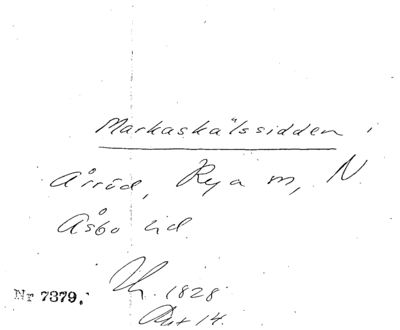 Markaskälssidden i
Årröd, Rya sn, N
Åsbo hd.
Nr 7379. 1828
14.